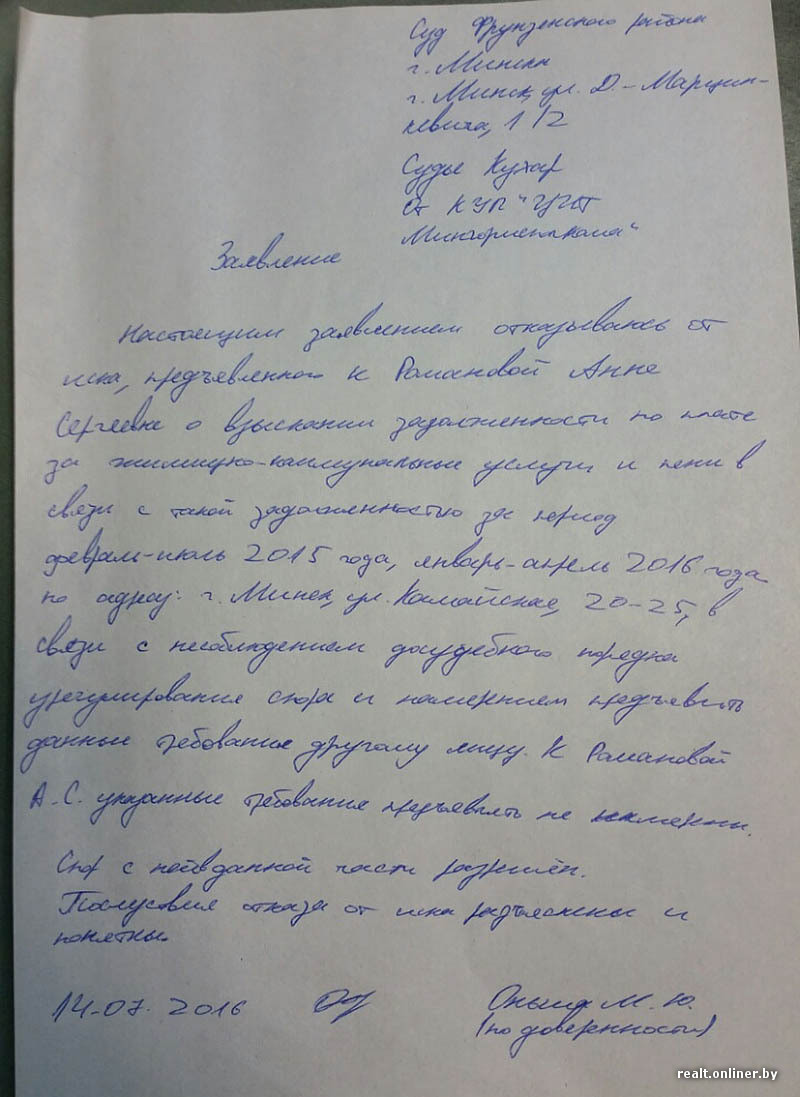 Суд Фрунзенского района
г. Минска
г. Минск, ул. Д.-Марцин-
кевича, 1/2
Судье Кухар
от КУП "ЦИТ
Мингорисполкома"
Заявление
Настоящим заявлением отказываюсь от
иска, предъявленного к Романовой Анне
Сергеевне о взыскании задолженности по плате
за жилищно-коммунальные услуги и пени в
связи с такой задолженностью за период
февраль-июль 2015 года, январь-апрель 2016 года
по адресу: г. Минск, ул. Камайская, 20-25, в
связи с несоблюдением досудебного порядка
урегулирования спора и намерением предъявить
данные требования другому лицу. К Романовой
А.С. указанные требования предъявлять не намерены.
Спор с ней в данной части разрешён.
Последствия отказа от иска разъяснены и
понятны.
14.07.2016 М.Ю.
(по доверенности)
realt.onliner.by